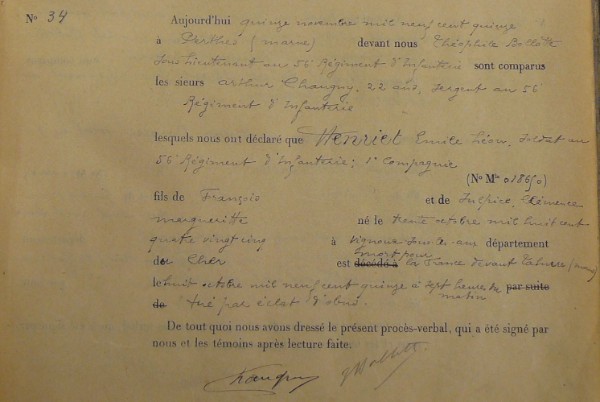 N° 34
Aujourd'hui quinze novembre mil neuf cent quinze
à Perthes (marne) devant nous Théophile
Sous Lieutenant au 56e Régiment d'Infanterie sont comparus
les sieurs Arthur Chaugny, 22 ans, sergent au 56
Régiment d'Infanterie
lesquels nous ont déclaré que Henriet Emile Léon, soldat au
56e Régiment d'Infanterie; 1e Compagnie
(No Mle 01865)
fils de François et de Sulpice, Clémence
margueritte né le trente octobre mil huit cent
quatre vingt cinq à Vignoux sous les aix département
du Cher est décédé à mort pour la France devant Tahure (marne)
le huit octobre mil neuf cent quinze à sept heures du matin par suite
de tué par éclat d'obus.
De tout quoi nous avons dressé le présent procès-verbal, qui a été signé par
nous et les témoins après lecture faite.